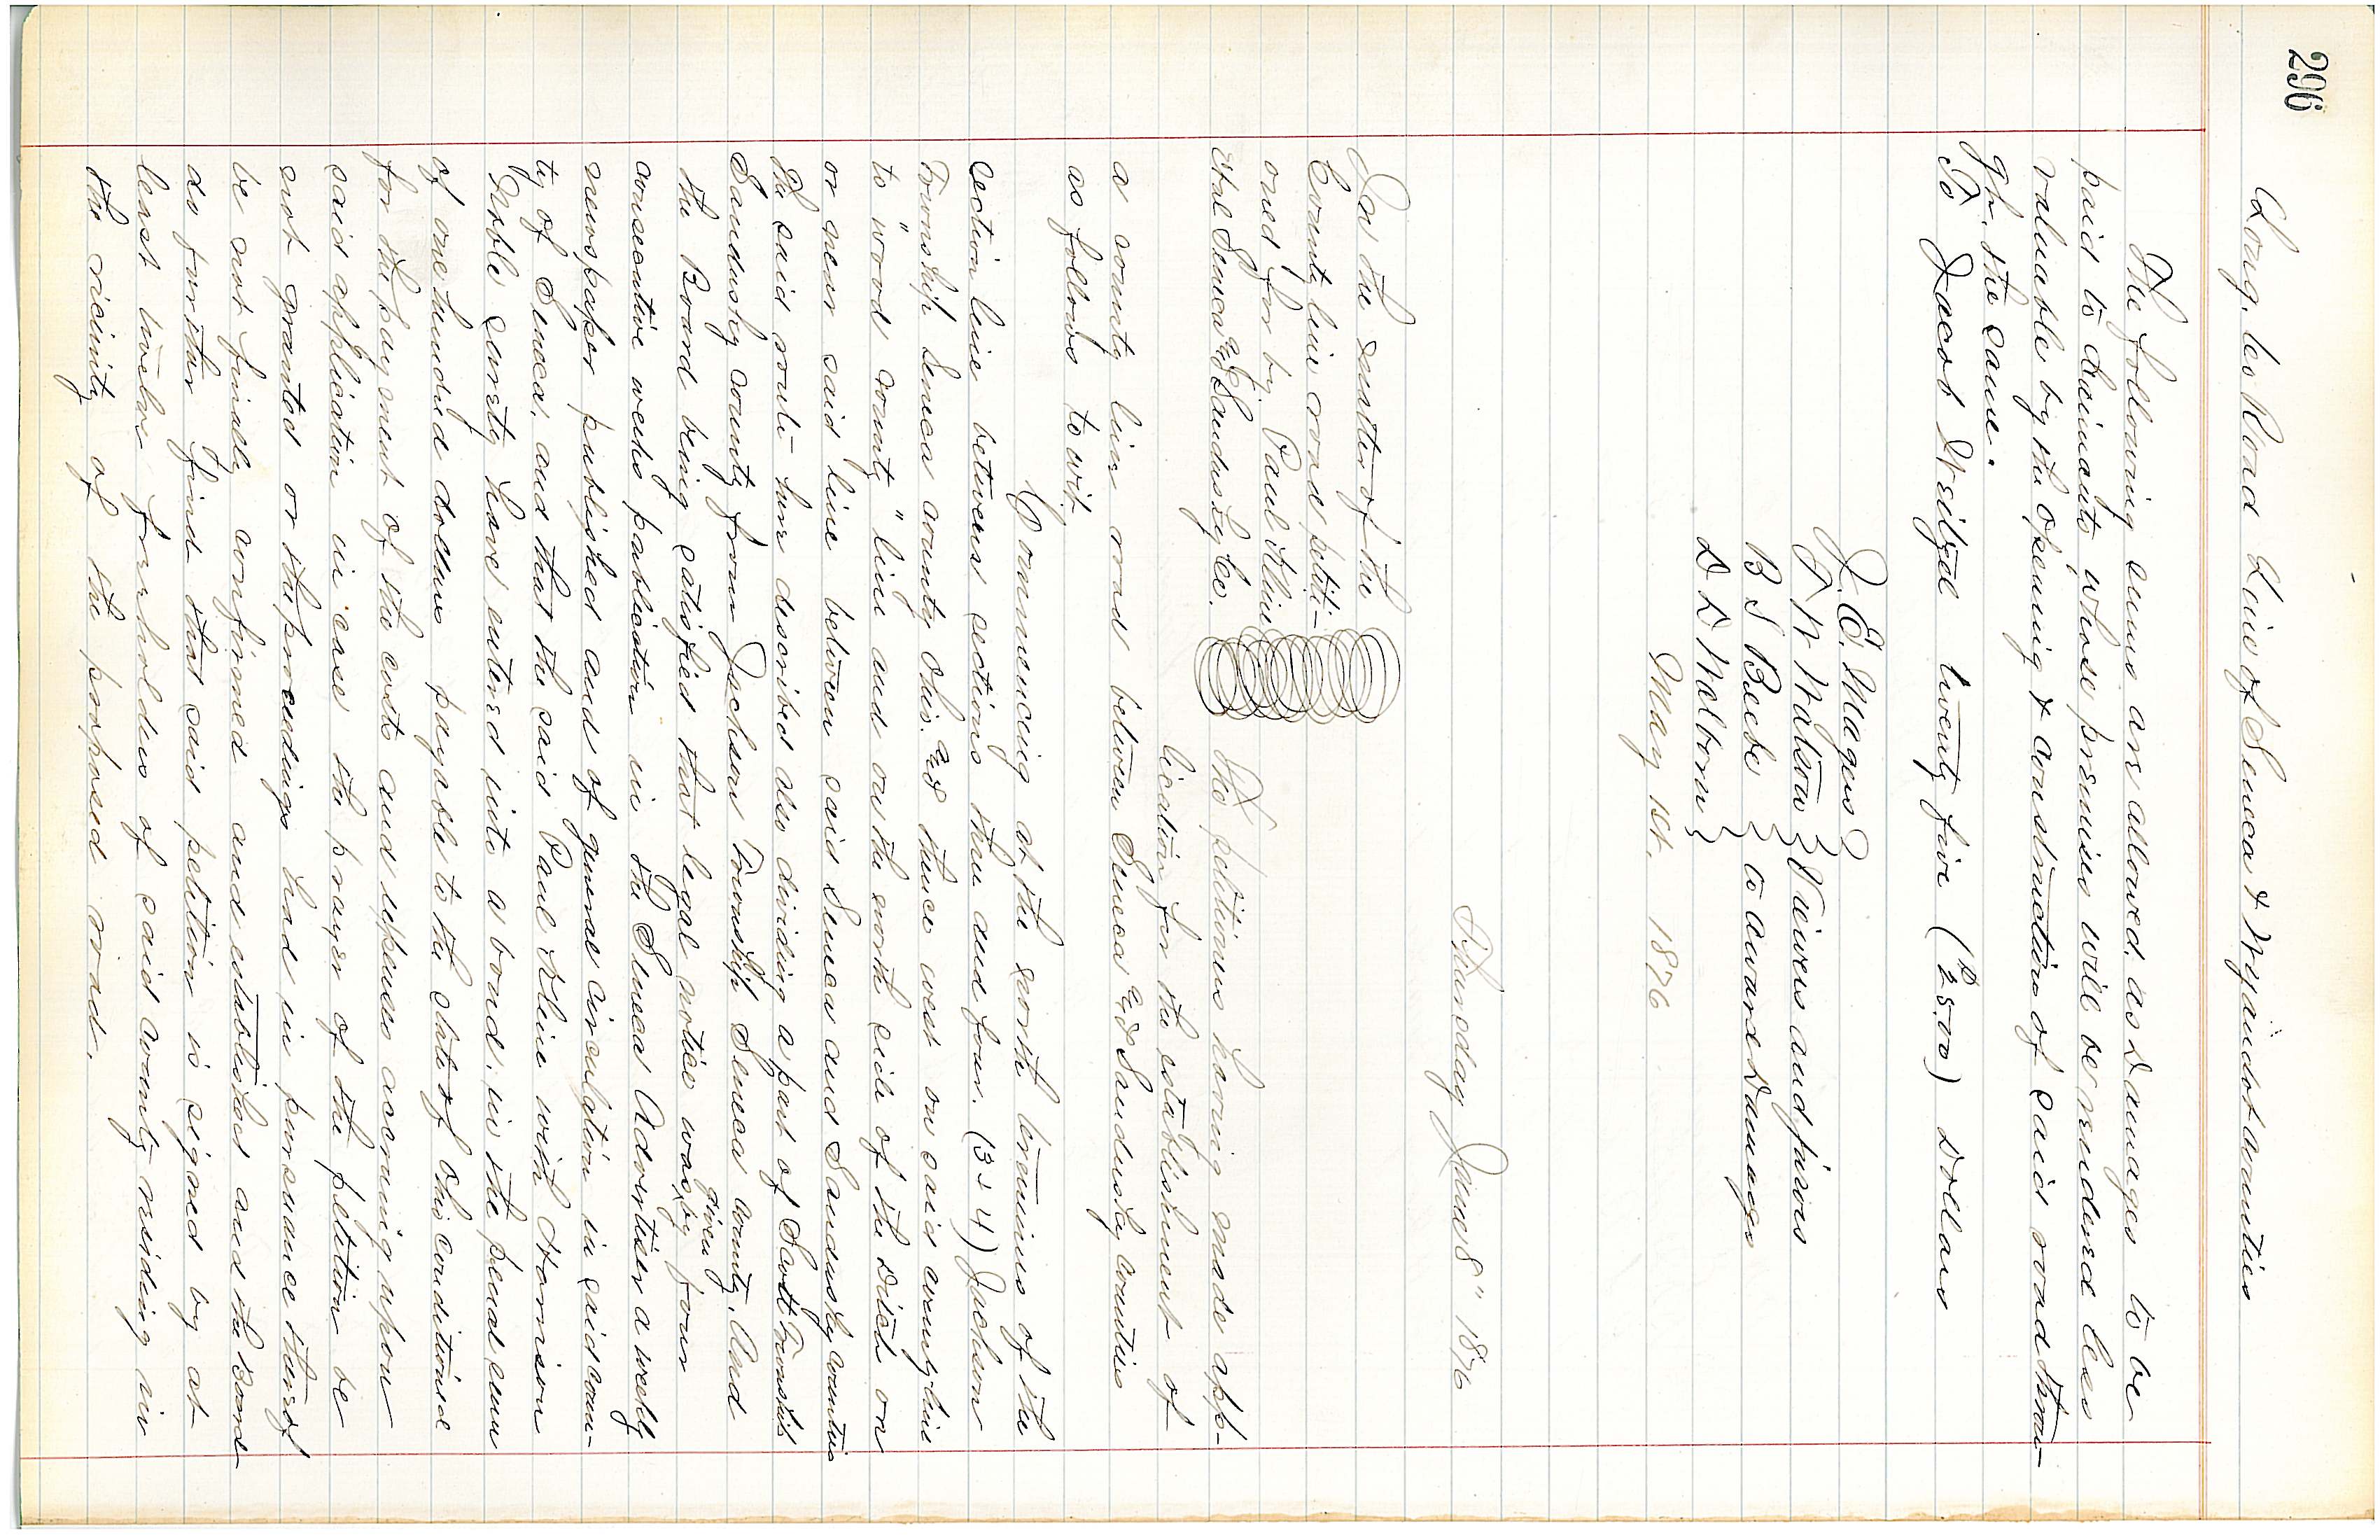 296
Long. les Road Line of Seneca & Wyandot Counties
The following sums are allowed, as Damages to be
paid to claimants, whose premises will be rendered less
valuable by the opening & construction of said road throu-
gh. the same.
To Jacob Weitzel twenty five ($25.00) Dollars
J. E. Magers }
T W Watson } Viewers and jurors
B S Beebe } to award Damages
D D Welborn }
May 1st. 1876
Thursday June 8" 1876
In the matter of the
County line road petiti-
oned for by. Paul Kline
etal Seneca and Sandusky Co.
The petitioners having made app-
lication for the establishment of
a county line road between Seneca and Sandusky counties
as follows to wit.
Commencing at the north terminus of the
section line between sections three and four. (3 & 4) Jackson
Township Seneca county Ohio. and thence west on said county-line
to "wood county" line and on the north side of the ditch on
or near said line between said Seneca and Sandusky counties
the said route here described also dividing a part of Scott Township
Sandusky county from Jackson Township Seneca county, And
the Board being satisfied that legal notice was given by four
consecutive weeks publication in the Seneca Advertiser a weekly
newspaper published and of general circulation in said coun-
ty of Seneca, and that the said Paul Kline with Harrison
Noble surety have entered into a bond, in the penal sum
of one hundred dollars payable to the state of Ohio conditioned
for the payment of the costs and expenses accruing upon
said application in case the prayer of the petition be
not granted or the proceedings had in pursuance thereof
be not finally confirmed and established and the Board
do further find that said petition is signed by at
least twelve freeholders of said county residing in
the vicinity of the proposed road.